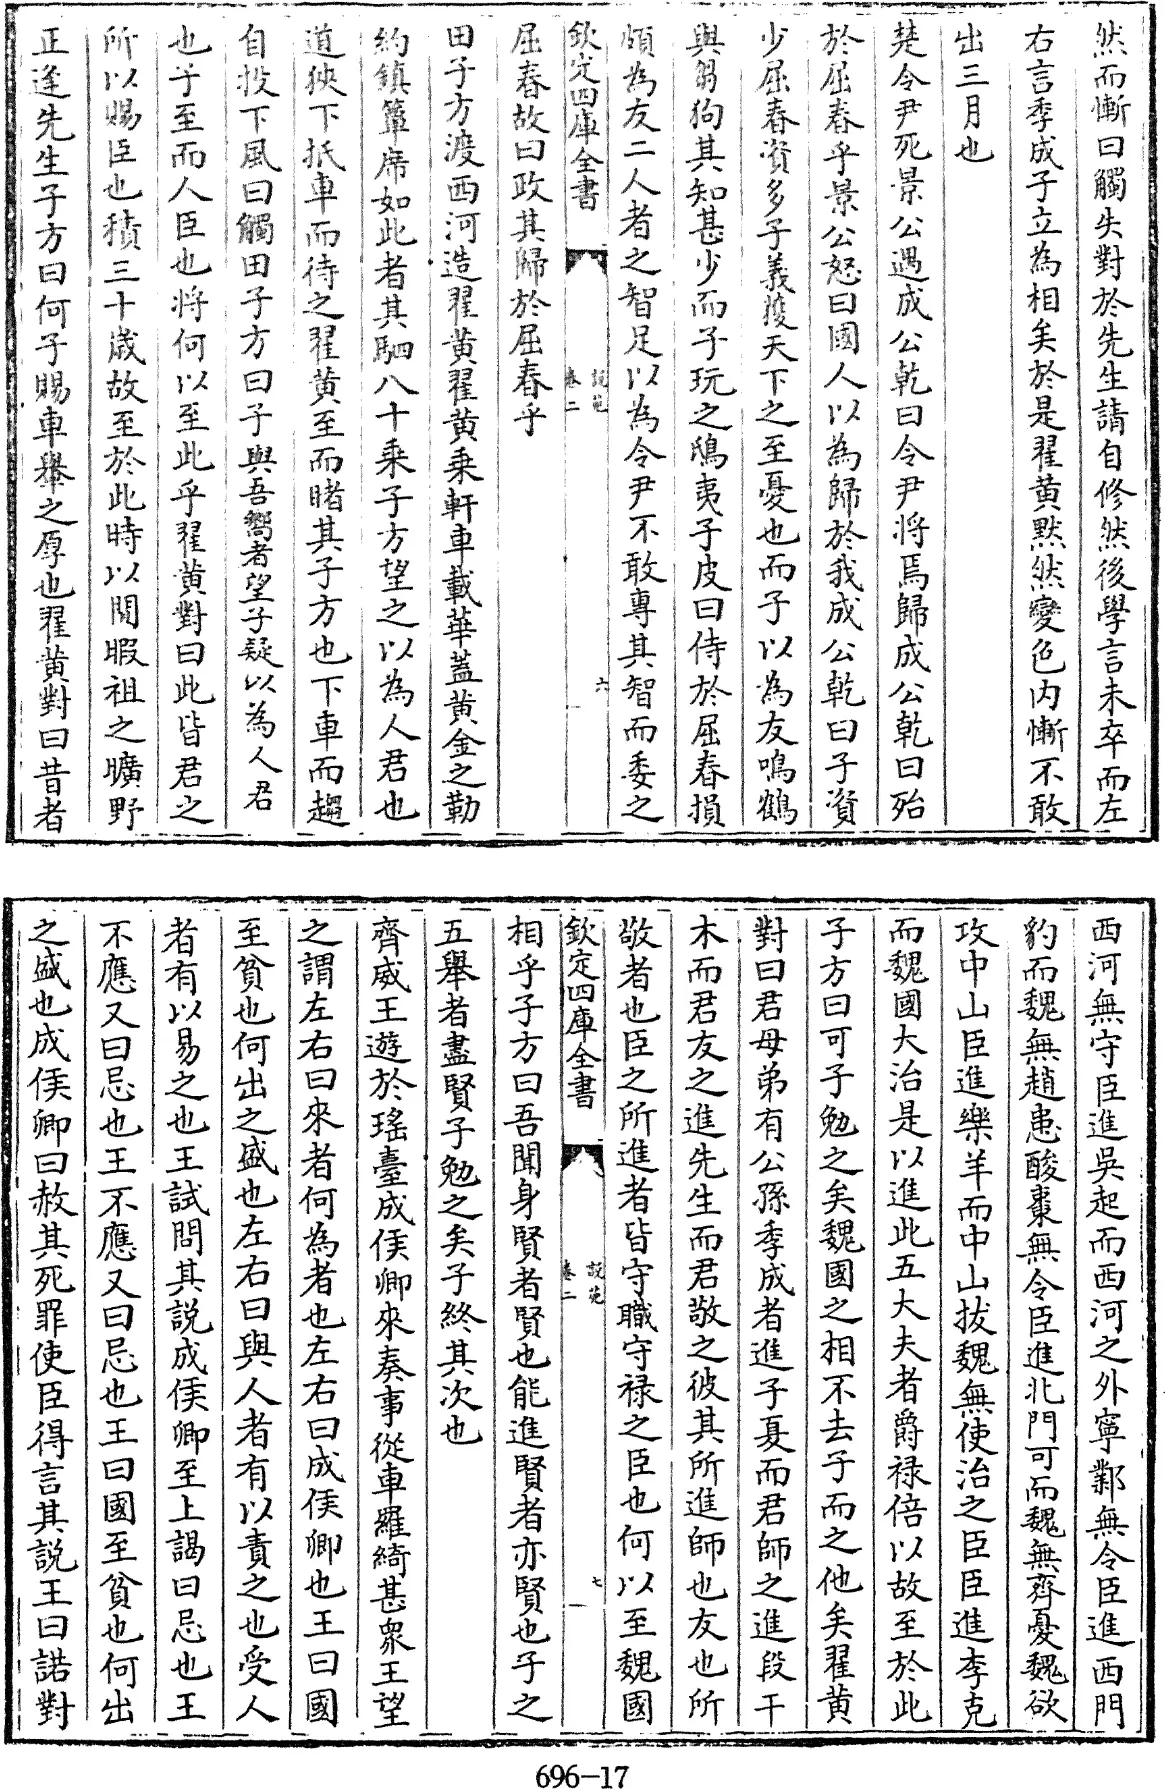 然而慚曰觸失對於先生請自修然後學言未卒而左
右言季成子立為相矣於是翟黄黙然變色内慚不敢
出三月也
楚令尹死景公遇成公乾曰令尹将焉歸成公乾曰殆
於屈春乎景公怒曰國人以為歸於我成公乾曰子資
少屈春資多子義獲天下之至憂也而子以為友鳴鶴
與芻狗其知甚少而子玩之鴟夷子皮曰侍於屈春損
頗為友二人者之智足以為令尹不敢專其智而委之
欽定四庫全書
說苑
卷二
六
屈春故曰政其歸於屈春乎
田子方渡西河造翟黄翟黄乘軒車載華蓋黄金之勒
約鎮簟席如此者其駟八十乘子方望之以為人君也
道狹下抵車而待之翟黄至而睹其子方也下車而趨
自投下風曰觸田子方曰子與吾嚮者望子疑以為人君
也子至而人臣也将何以至此乎翟黄對曰此皆君之
所以賜臣也積三十歳故至於此時以閒暇祖之曠野
正逢先生子方曰何子賜車轝之厚也翟黄對曰昔者
西河無守臣進吳起而西河之外寧鄴無令臣進西門
豹而魏無趙患酸棗無令臣進北門可而魏無齊憂魏欲
攻中山臣進樂羊而中山拔魏無使治之臣臣進李克
而魏國大治是以進此五大夫者爵禄倍以故至於此
子方曰可子勉之矣魏國之相不去子而之他矣翟黄
對曰君母弟有公孫季成者進子夏而君師之進段干
木而君友之進先生而君敬之彼其所進師也友也所
敬者也臣之所進者皆守職守禄之臣也何以至魏國
欽定四庫全書
說苑
卷二
七
相乎子方曰吾聞身賢者賢也能進賢者亦賢也子之
五舉者盡賢子勉之矣子終其次也
齊威王遊於瑤臺成侯卿來奏事從車羅綺甚衆王望
之謂左右曰來者何為者也左右曰成侯卿也王曰國
至貧也何出之盛也左右曰與人者有以責之也受人
者有以易之也王試問其説成侯卿至上謁曰忌也王
不應又曰忌也王不應又曰忌也王曰國至貧也何出
之盛也成侯卿曰赦其死罪使臣得言其説王曰諾對
696-17